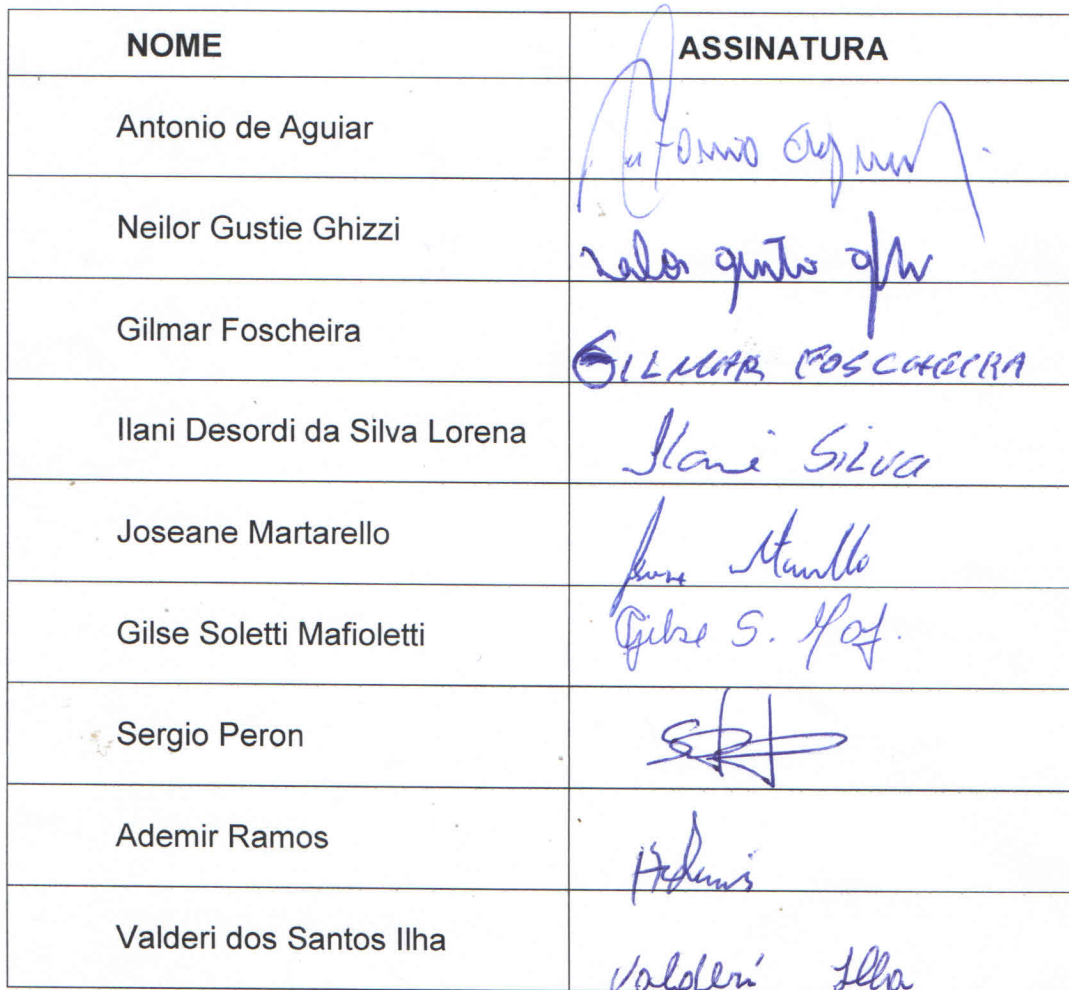 NOME ASSINATURA
Antonio de Aguiar
Neilor Gustie Ghizzi
Gilmar Foscheira GILMAR FOSCHEIRA
Ilani Desordi da Silva Lorena Ilani SILVA
Joseane Martarello
Gilse Soletti Mafioletti Gilse S. Maf.
Sergio Peron
Ademir Ramos
Valderi dos Santos Ilha Valderi Ilha